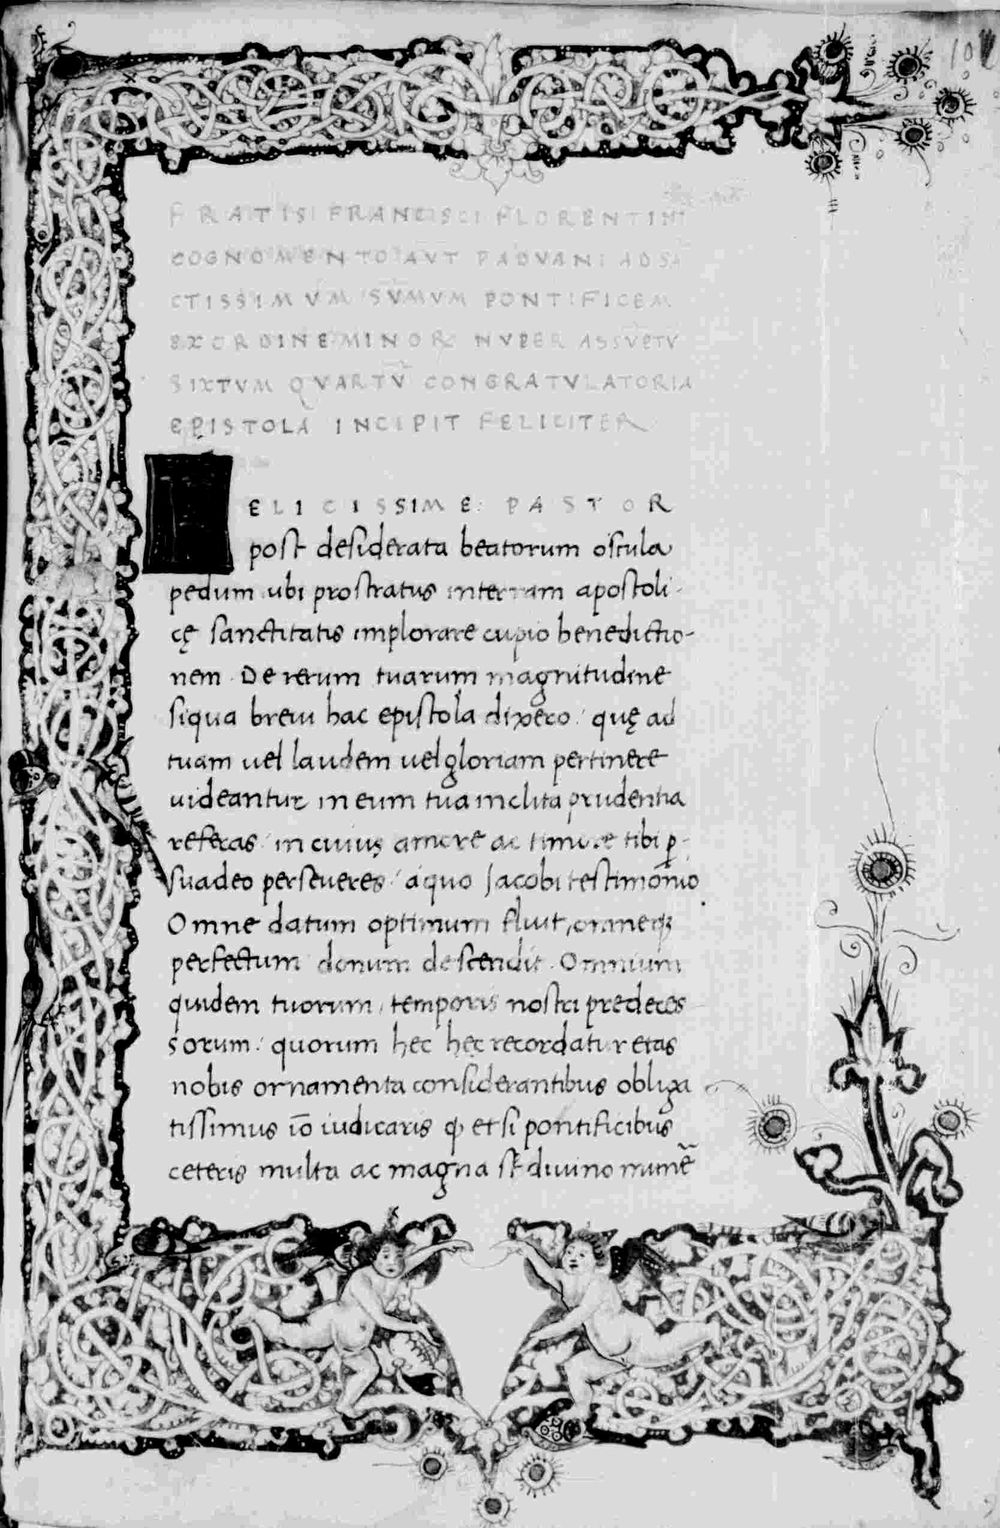 107
FRATIS FRANCISCI FLORENTINI
COGNOMENTO AVT PADVANI AD SA
CTISSIMVM SV̄MVM PONTIFICEM
EX ORDINE MINOR NVPER ASSVP̄TV̄
SIXTVM QVARTV̄ CONGRATVLATORIA
EPISTOLA INCIPIT FELICITER
ELICISSIME PASTOR
post desiderata beatorum oscula
pedum ubi prostratus interram apostoli-
cę sanctitatis implorare cupio benedictio-
nem. De rerum tuarum magnitudine
siqua breui hac epistola dixero: quę ad
tuam uel laudem uel gloriam pertinere
uideantur in eum tua inclita prudentia
referas: in cuius amore ac timore tibi ꝑ-
suadeo perseueres: a quo Jacobi testimonio
Omne datum optimum fluit, omneqꝫ
perfectum donum descendit. Omnium
quidem tuorum, temporis nostri predeces
sorum: quorum hec hęc recordatur etas
nobis ornamenta considerantibus obliga
tissimus iō iudicaris ꝙ et si pontificibus
ceteris multa ac magna st̄ diuino numē